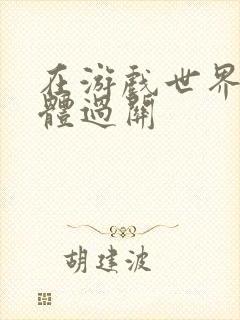 在游戏世界
體過關
胡建波